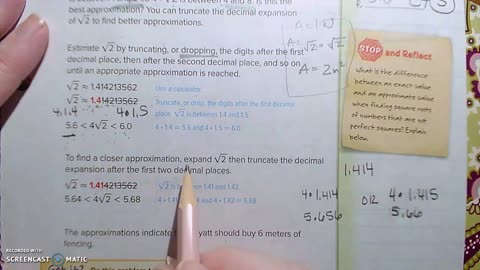 best approximation? You can truncate the decimal expansion
of √2 to find better approximations.
Estimate √2 by truncating, or dropping, the digits after the first
decimal place, then after the second decimal place, and so on
until an appropriate approximation is reached.
√2 ≈ 1.414213562 Use a calculator.
√2 ≈ 1.414213562 Truncate, or drop, the digits after the first decimal
place. √2 is between 1.4 and 1.5.
4·1.4 4·1.5
5.6 < 4√2 < 6.0 4 • 1.4 = 5.6 and 4 • 1.5 = 6.0.
To find a closer approximation, expand √2 then truncate the decimal
expansion after the first two decimal places.
√2 ≈ 1.414213562 √2 is between 1.41 and 1.42.
5.64 < 4√2 < 5.68 4 • 1.41 and 4 • 1.42 = 5.68
The approximations indicate yatt should buy 6 meters of
fencing.
STOP and Reflect
What is the difference
between an exact value
and an approximate value
when finding square roots
of numbers that are not
perfect squares? Explain
below.
1.414
4·1.414 4·1.415
5.656 5.66
RECORDED WITH
SCREENCAST MATIC